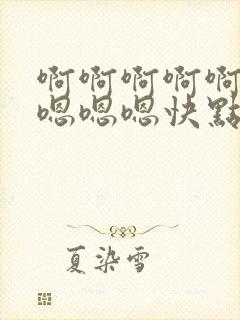 啊啊啊啊啊
嗯嗯嗯快點
夏染雪